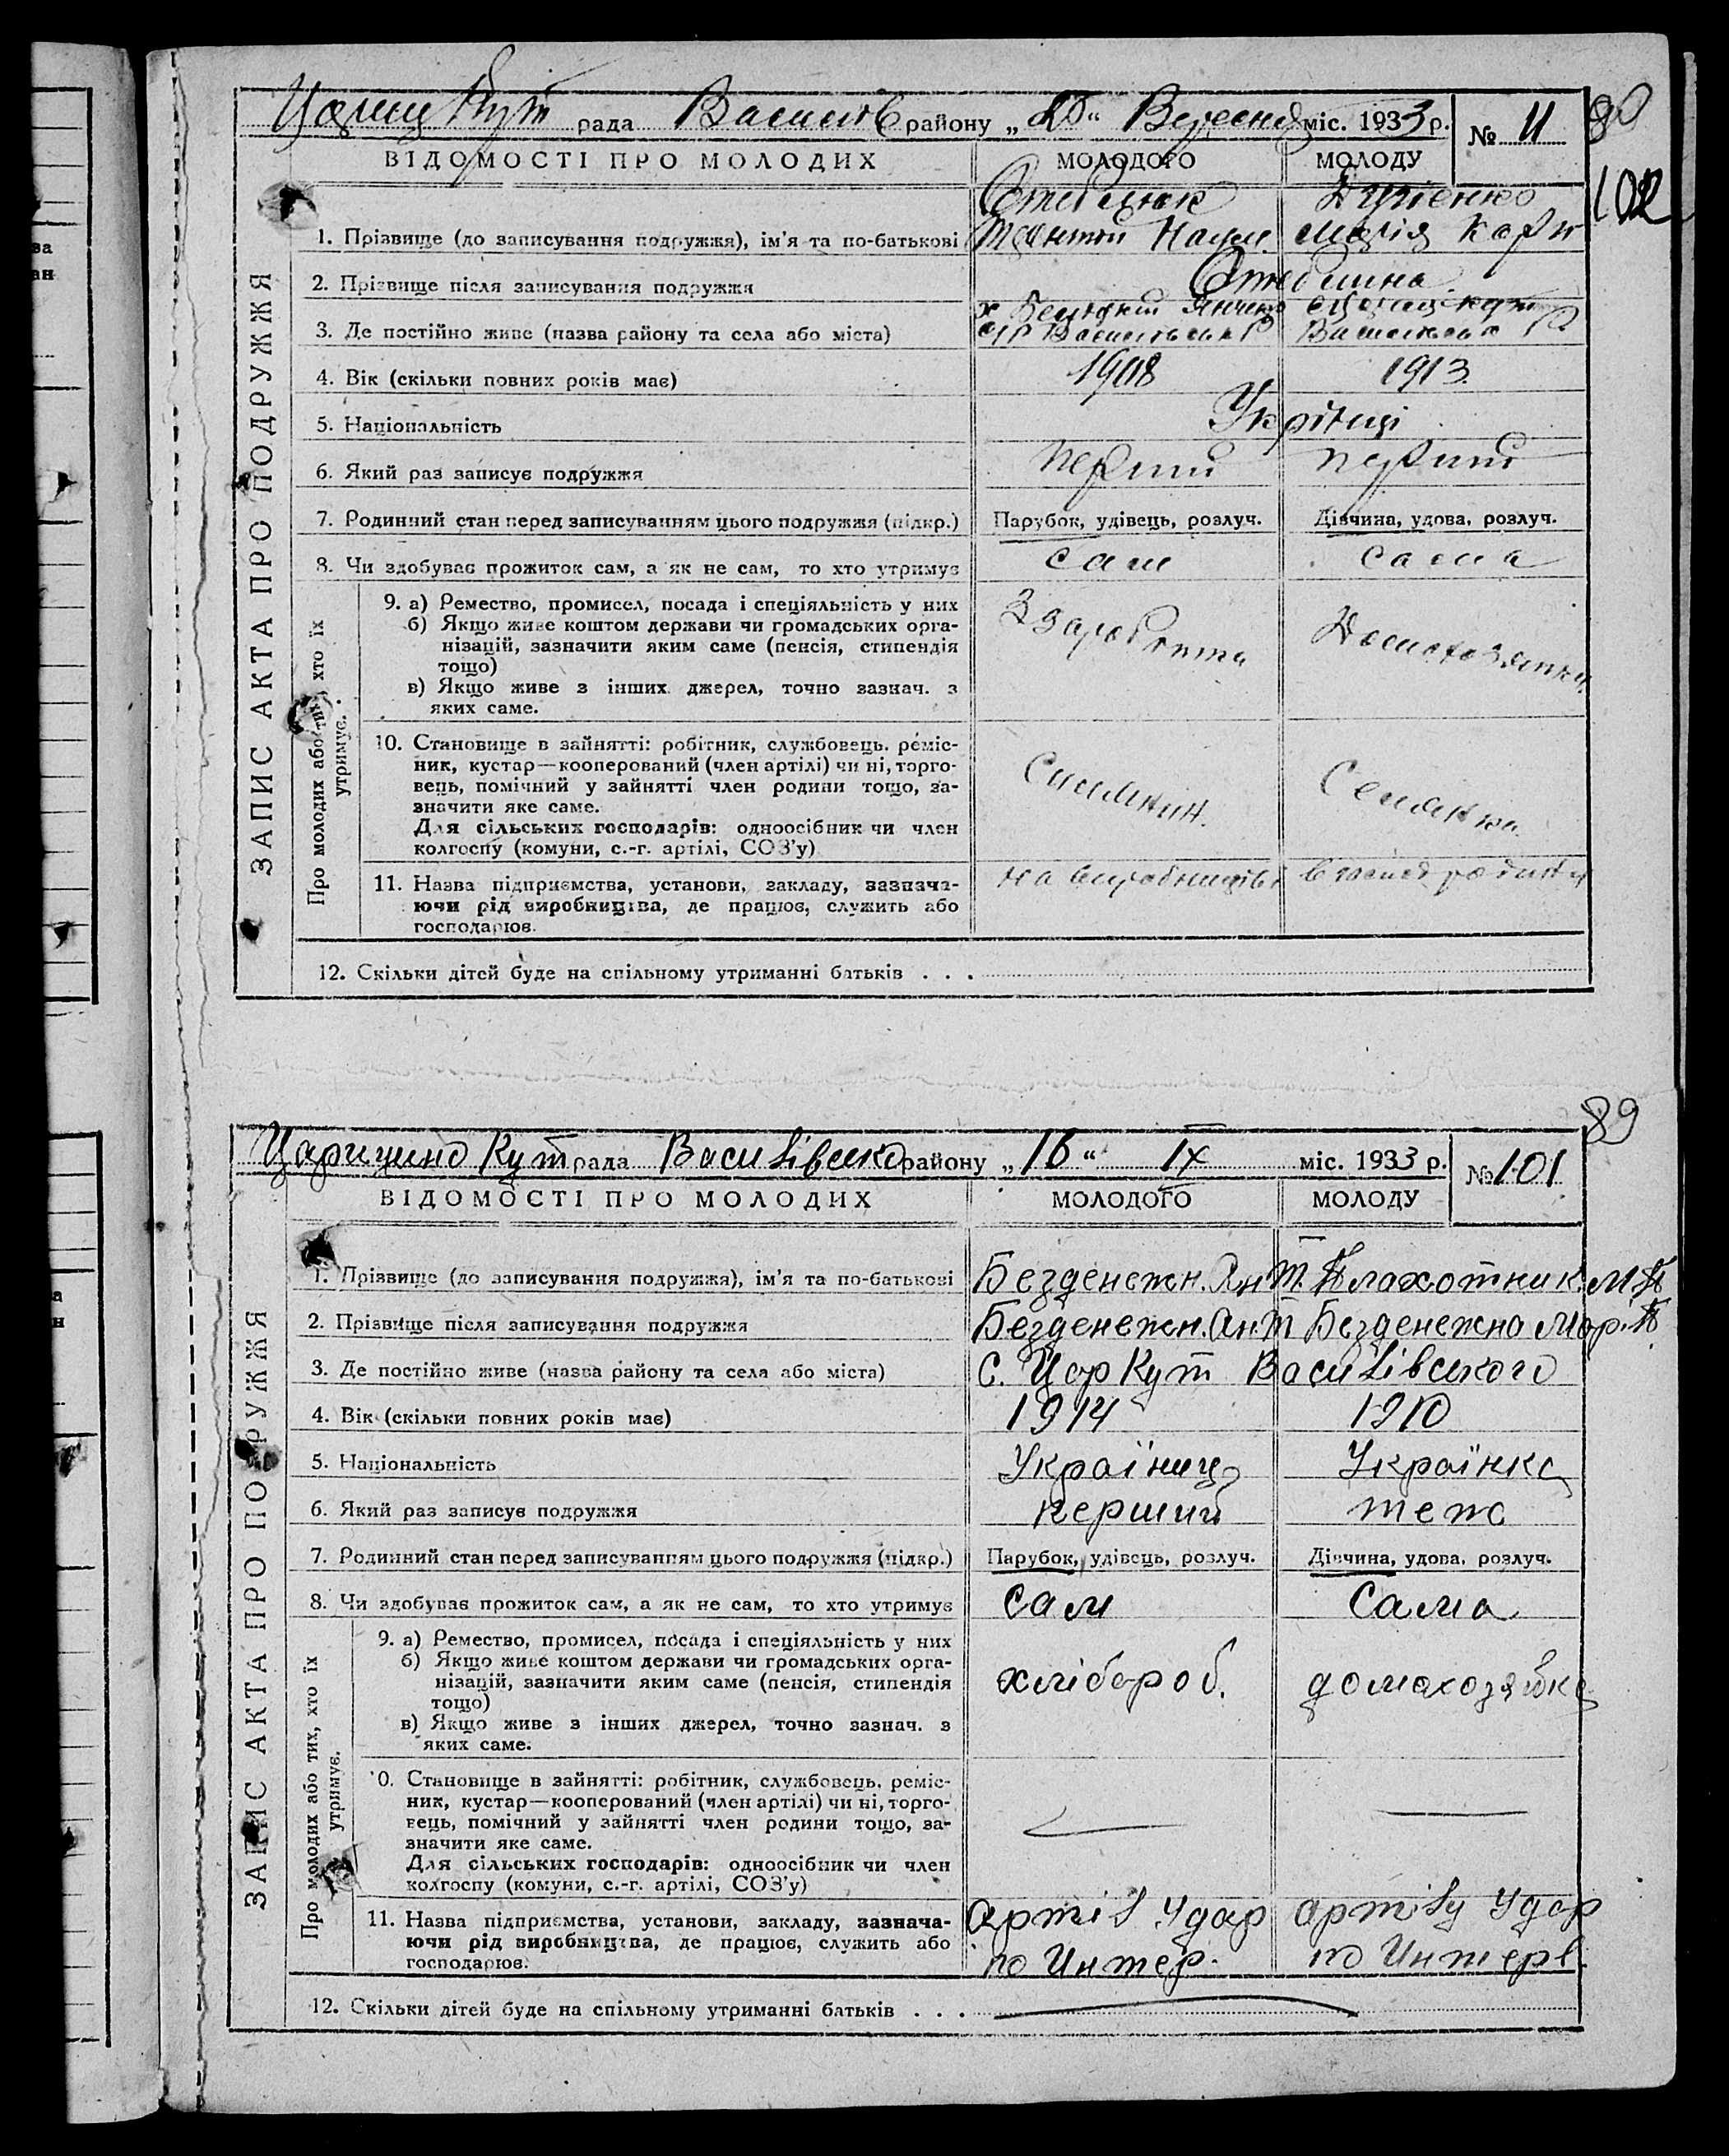 Кут рада Василів району „20“ Вересня міс. 1933 р. № 11
80
102
ВІДОМОСТІ ПРО МОЛОДИХ МОЛОДОГО МОЛОДУ
ЗАПИС АКТА ПРО ПОДРУЖЖЯ
1. Прізвище (до записування подружжя), ім'я та по-батькові Наум Марія Карп
2. Прізвище після записування подружжя
3. Де постійно живе (назва району та села або міста)
4. Вік (скільки повних років має) 1908 1913
5. Національність Українці
6. Який раз записує подружжя перший перший
7. Родинний стан перед записуванням цього подружжя (підкр.) Парубок, удівець, розлуч. Дівчина, удова, розлуч.
8. Чи здобуває прожиток сам, а як не сам, то хто утримує сам сама
Про молодих або тих, хто їх утримує.
9. а) Ремество, промисел, посада і спеціяльність у них
б) Якщо живе коштом держави чи громадських орга-
нізацій, зазначити яким саме (пенсія, стипендія
тощо)
в) Якщо живе з інших джерел, точно зазнач. з
яких саме.
З заробітка Домохозяйка
10. Становище в зайнятті: робітник, службовець, реміс-
ник, кустар—кооперований (член артілі) чи ні, торго-
вець, помічний у зайнятті член родини тощо, за-
значити яке саме.
Для сільських господарів: одноосібник чи член
колгоспу (комуни, с.-г. артілі, СОЗ'у)
Селянин. Селянка
11. Назва підприємства, установи, закладу, зазнача-
ючи рід виробництва, де працює, служить або
господарює.
на виробництві
12. Скільки дітей буде на спільному утриманні батьків . . .
89
Царицино Кут рада Василівско району „16“ IX міс. 1933 р. № 101
ВІДОМОСТІ ПРО МОЛОДИХ МОЛОДОГО МОЛОДУ
ЗАПИС АКТА ПРО ПОДРУЖЖЯ
1. Прізвище (до записування подружжя), ім'я та по-батькові Безденежн. Ан. Т. Плахотник. М П
2. Прізвище після записування подружжя Безденежн. Ан. Т Безденежна Мар. П
3. Де постійно живе (назва району та села або міста) С. Цар Кут Василівського
4. Вік (скільки повних років має) 1914 1910
5. Національність Українець Українка
6. Який раз записує подружжя перший теж
7. Родинний стан перед записуванням цього подружжя (підкр.) Парубок, удівець, розлуч. Дівчина, удова, розлуч.
8. Чи здобуває прожиток сам, а як не сам, то хто утримує сам Сама
Про молодих або тих, хто їх утримує.
9. а) Ремество, промисел, посада і спеціяльність у них
б) Якщо живе коштом держави чи громадських орга-
нізацій, зазначити яким саме (пенсія, стипендія
тощо)
в) Якщо живе з інших джерел, точно зазнач. з
яких саме.
хлібороб. домохозяйка
0. Становище в зайнятті: робітник, службовець, реміс-
ник, кустар—кооперований (член артілі) чи ні, торго-
вець, помічний у зайнятті член родини тощо, за-
значити яке саме.
Для сільських господарів: одноосібник чи член
колгоспу (комуни, с.-г. артілі, СОЗ'у)
11. Назва підприємства, установи, закладу, зазнача-
ючи рід виробництва, де працює, служить або
господарює.
артіл Удар артілу Удар
по Интер. по Интерв.
12. Скільки дітей буде на спільному утриманні батьків . . .